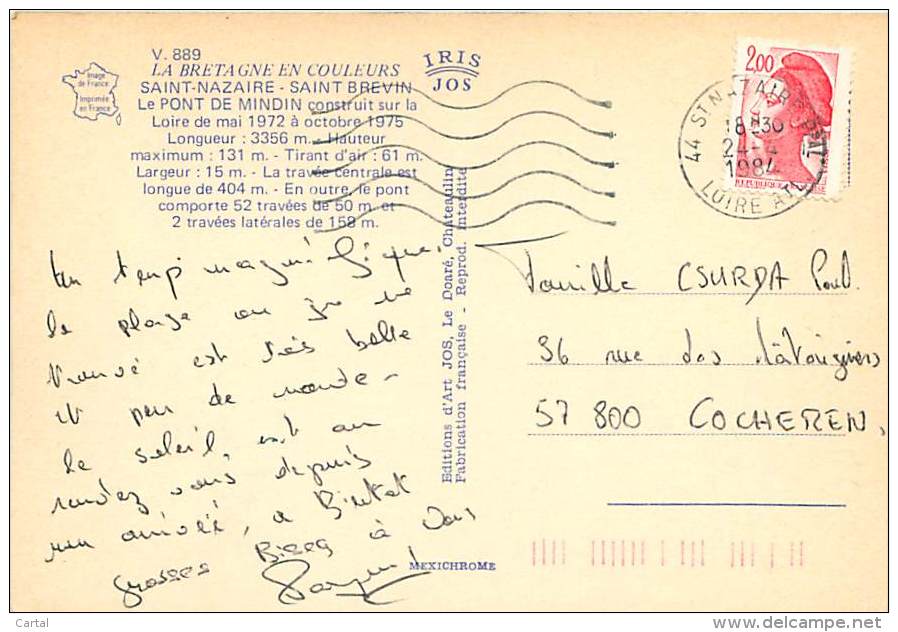 V. 889
LA BRETAGNE EN COULEURS
SAINT-NAZAIRE - SAINT BREVIN
Le PONT DE MINDIN construit sur la
Loire de mai 1972 à octobre 1975
Longueur : 3356 m. - Hauteur
maximum : 131 m. - Tirant d'air : 61 m.
Largeur : 15 m. - La travée centrale est
longue de 404 m. - En outre, le pont
comporte 52 travées de 50 m. et
2 travées latérales de 158 m.
Image
de France
Imprimée
en France
IRIS
JOS
2,00
44 ST NAZAIRE
18H30
24-4
1984
LOIRE ATL
Un temp magnifique.
la plage ou je me
trouve est très belle
et peu de monde -
le soleil, est au
rendez vous depuis
mon arrivée, a Bientot
grosses Bises à Vous
Editions d'Art JOS, Le Doaré, Châteaulin
Fabrication française - Reprod. interdite
MEXICHROME
Famille CSURDA Paul.
36 rue des
57 800 COCHEREN,
Cartal
www.delcampe.net